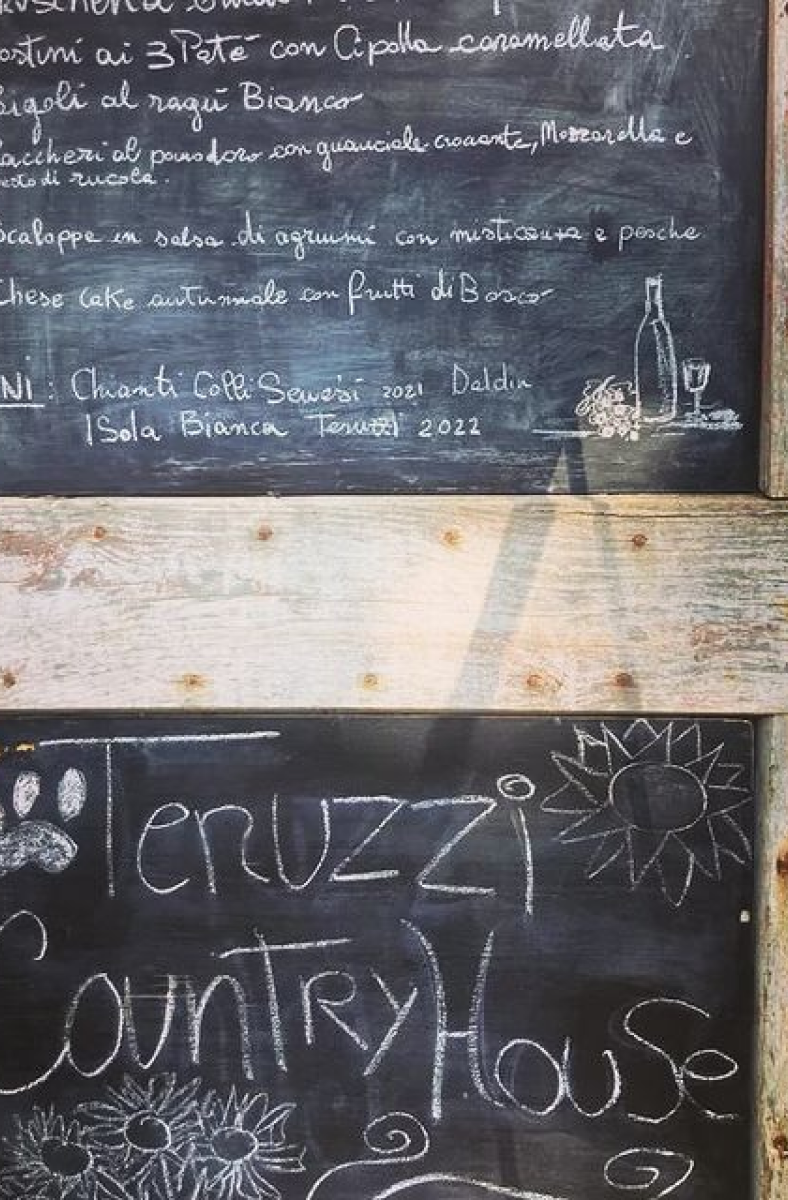 ostini ai 3 Paté con Cipolla caramellata
igoli al ragù Bianco
accheri al pomodoro con guanciale croccante, Mozzarella e
esto di rucola.
caloppe in salsa di agrumi con misticanza e pesche
Chese cake autunnale con frutti di Bosco
NI : Chianti Colli Senesi 2021
ISola Bianca Teruzzi 2022
Teruzzi
CounTRy HouSe